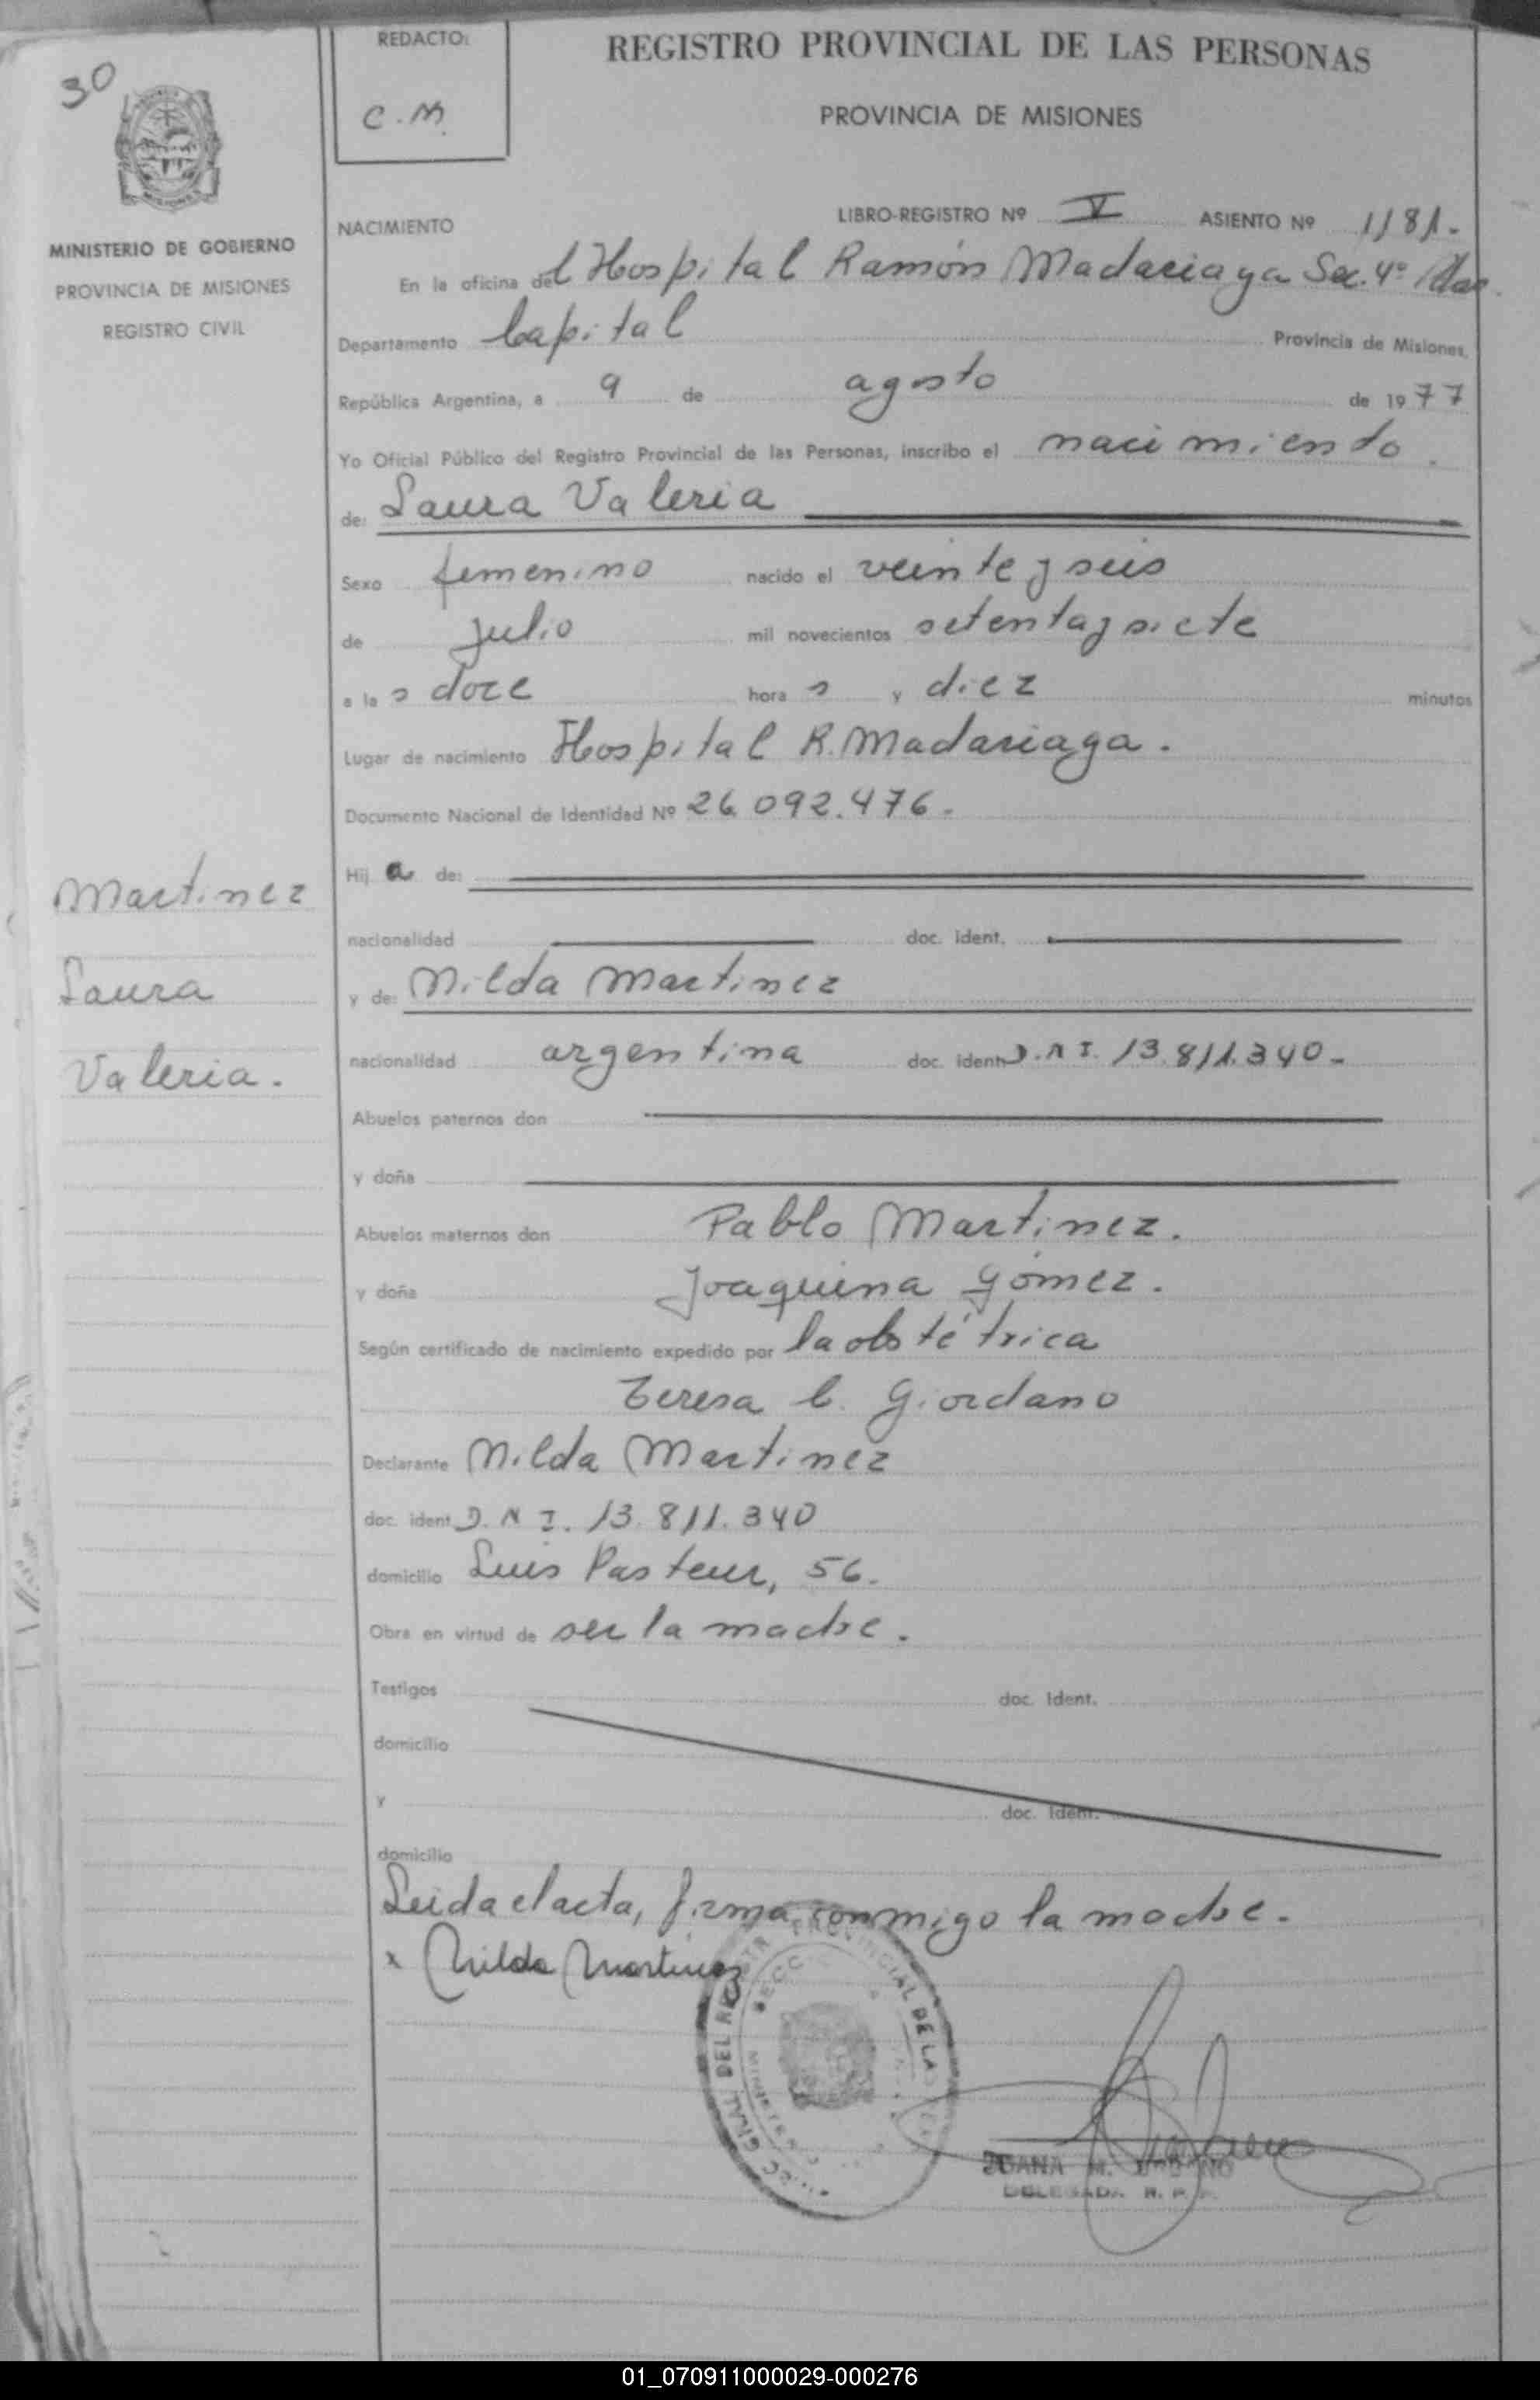 30
REDACTO:
C.M.
REGISTRO PROVINCIAL DE LAS PERSONAS
PROVINCIA DE MISIONES
MINISTERIO DE GOBIERNO
PROVINCIA DE MISIONES
REGISTRO CIVIL
NACIMIENTO LIBRO-REGISTRO Nº V ASIENTO Nº 1181.-
En la oficina del Hospital Ramón Madariaga Sec. 4º
Departamento Capital Provincia de Misiones,
República Argentina, a 9 de agosto de 1977
Yo Oficial Público del Registro Provincial de las Personas, inscribo el nacimiento.
de: Laura Valeria
Sexo femenino nacido el veinte y seis
de julio mil novecientos setenta y siete
a las doce horas y diez minutos
Lugar de nacimiento Hospital R. Madariaga.
Documento Nacional de Identidad Nº 26.092.476.-
Hija de:
nacionalidad doc. ident.
y de: Nilda Martinez
nacionalidad argentina doc. ident D.N.I. 13.811.340.-
Abuelos paternos don
y doña
Abuelos maternos don Pablo Martinez.
y doña Joaquina Gómez.
Según certificado de nacimiento expedido por la obstétrica
Teresa C. Giordano
Declarante Nilda Martinez
doc. ident. D.N.I. 13.811.340
domicilio Luis Pasteur, 56.
Obra en virtud de ser la madre.
Testigos doc. Ident.
domicilio
y doc. Ident.
domicilio
Leida el acta, firma conmigo la madre.
x Nilda Martinez
Martinez
Laura
Valeria.
GRAL. DEL PROVINCIAL DE LA
SECC
JUANA M.
DELEGADA R. P.
01_070911000029-000276